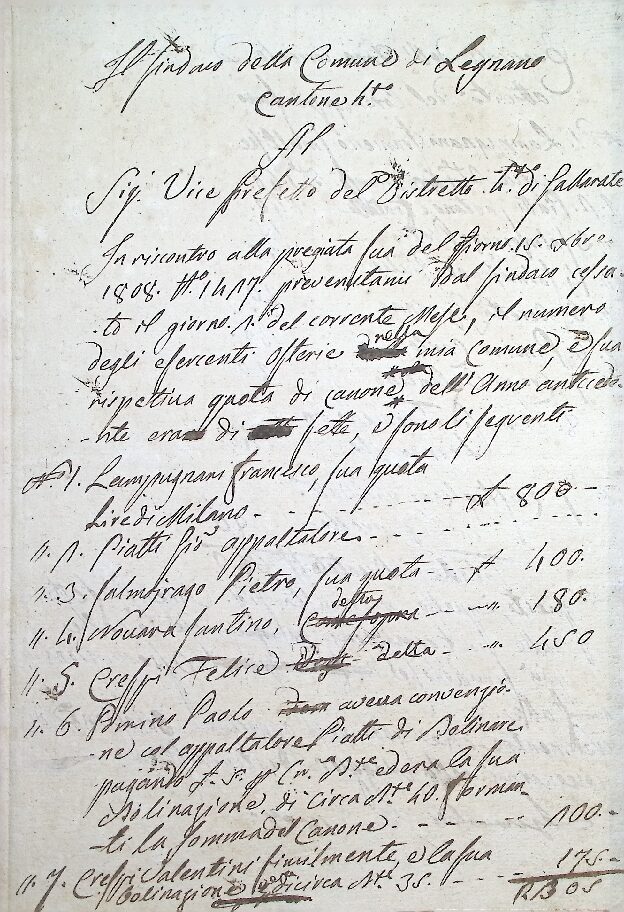 Il Sindaco della Comune di Legnano
Cantone 4.to
Al
Sig. Vice Prefetto del Distretto 4.to di Gallarate
In riscontro alla pregiata sua del giorno 15. xbre
1808. N.o 1417. prevenutami dal Sindaco cessa-
to il giorno 1. del corrente Mese, il numero
degli esercenti Osterie nella mia comune, e sua
rispetiva quota di canone dell'Anno antiede-
nte era di sette, e sono li seguenti
N.o 1. Lampugnani Francesco, sua quota
Lire di Milano - 800 -
". 2. Piatti Gio. appaltatore
". 3. Salmojrago Pietro, sua quota - 400.
". 4. Novara Santino, detta - ". 180.
". 5. Crespi Felice detta - ". 450
". 6. Pomino Paolo aveva convenzio-
ne col appaltatore Piatti di Bolinare
pagando ed era la sua
Bolinazione di circa 40. forman-
ti la somma del Canone. - 100. -
". 7. Crespi Valentini similmente, e la sua
bolinazione di circa 35. - 175. -